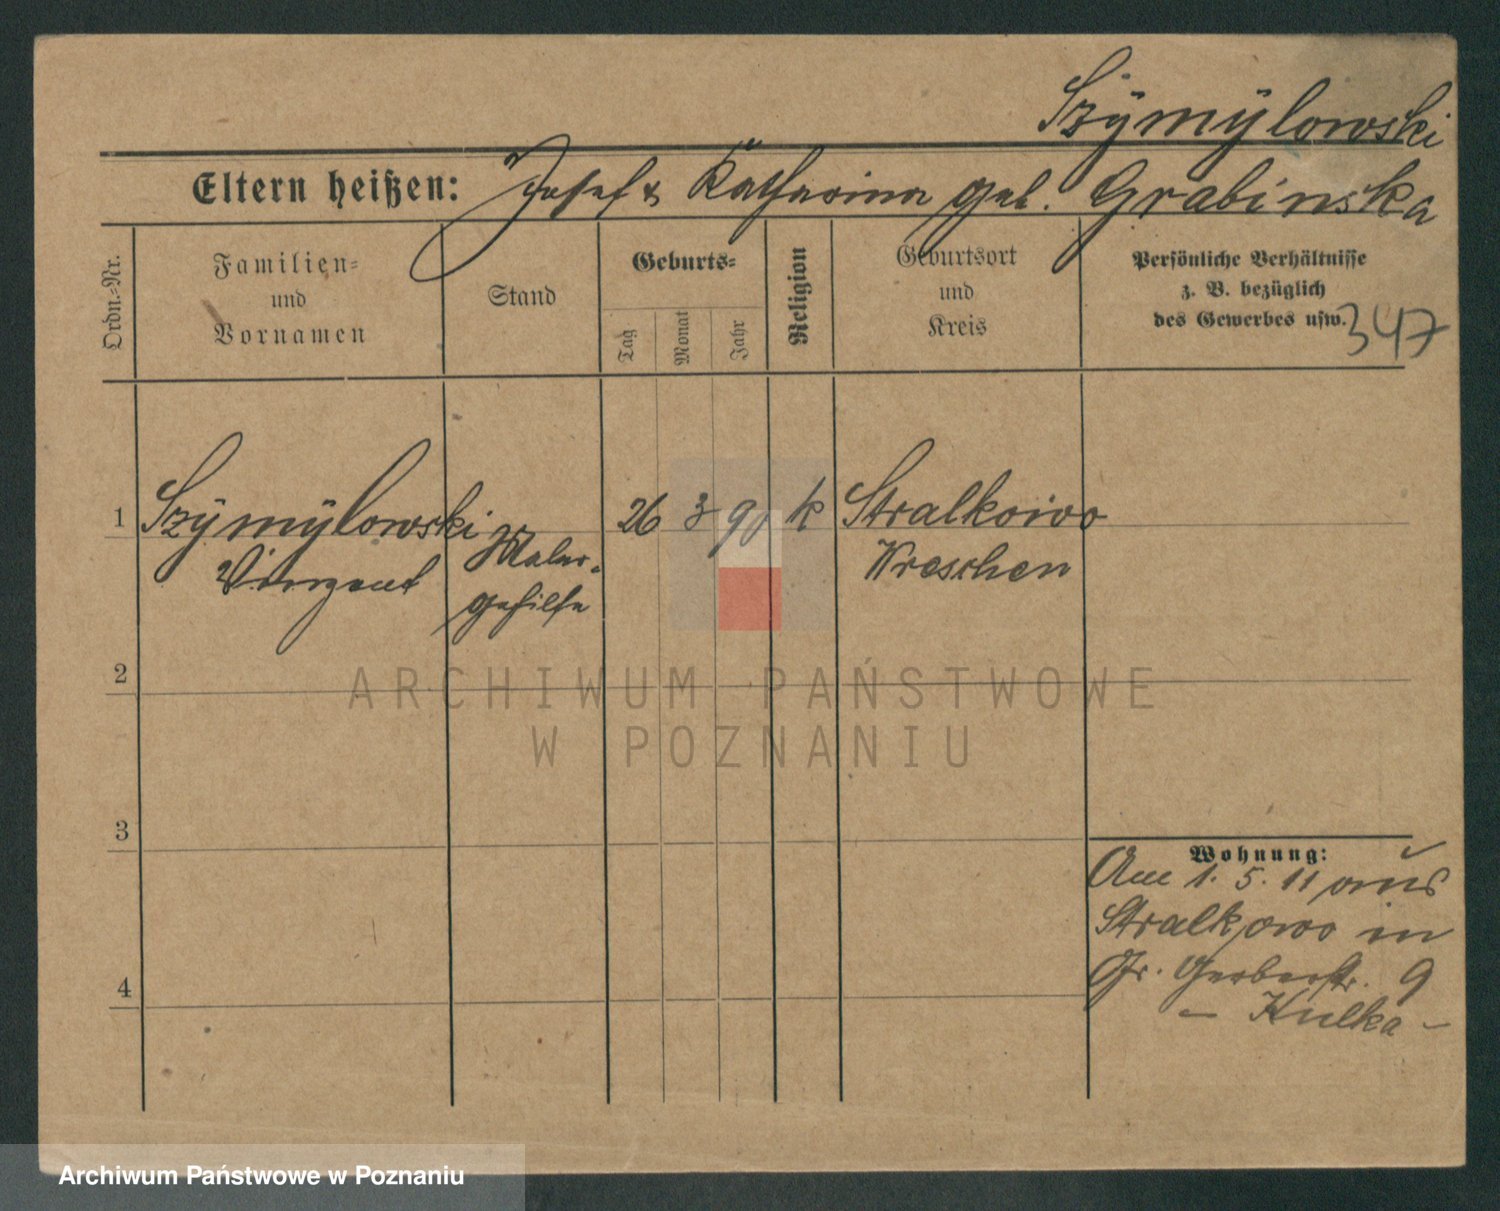 Szÿmÿlowski
Eltern heißen: Josef & Katharina geb. Grabinska
Ordn.-Nr.
Familien-
und
Vornamen
Stand
Geburts-
Tag
Monat
Jahr
Religion
Geburtsort
und
Kreis
Persönliche Verhältnisse
z. B. bezüglich
des Gewerbes usw.
347
1 Szÿmÿlowski 26 3 90 k Stralkowo
Vinzent Maler- Wreschen
gehilfe
2
ARCHIWUM PAŃSTWOWE
W POZNANIU
3
Wohnung:
Am 1. 5. 11 aus
Stralkowo in
4 Gr. Gerberstr. 9
– Kulka –
Archiwum Państwowe w Poznaniu